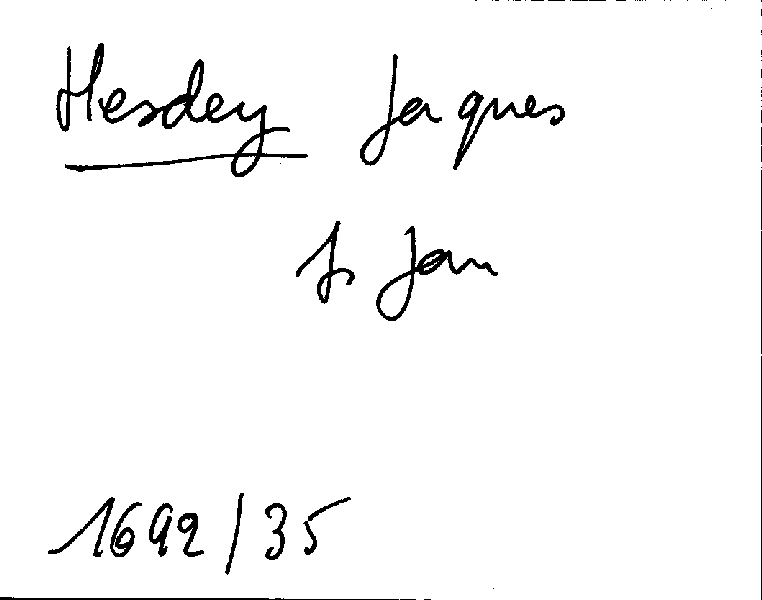 Hesdey Jaques
fs Jan
1692/35